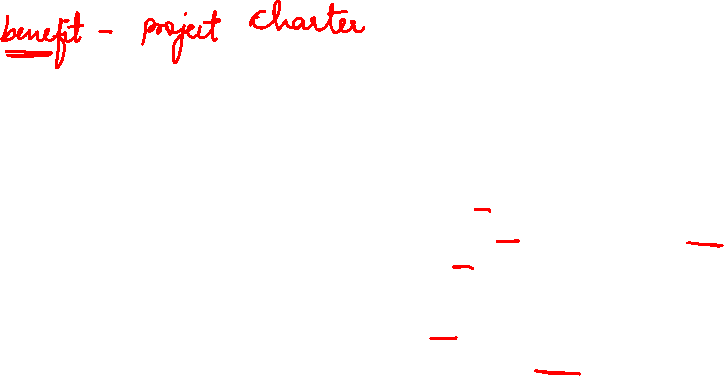 benefit - project charter